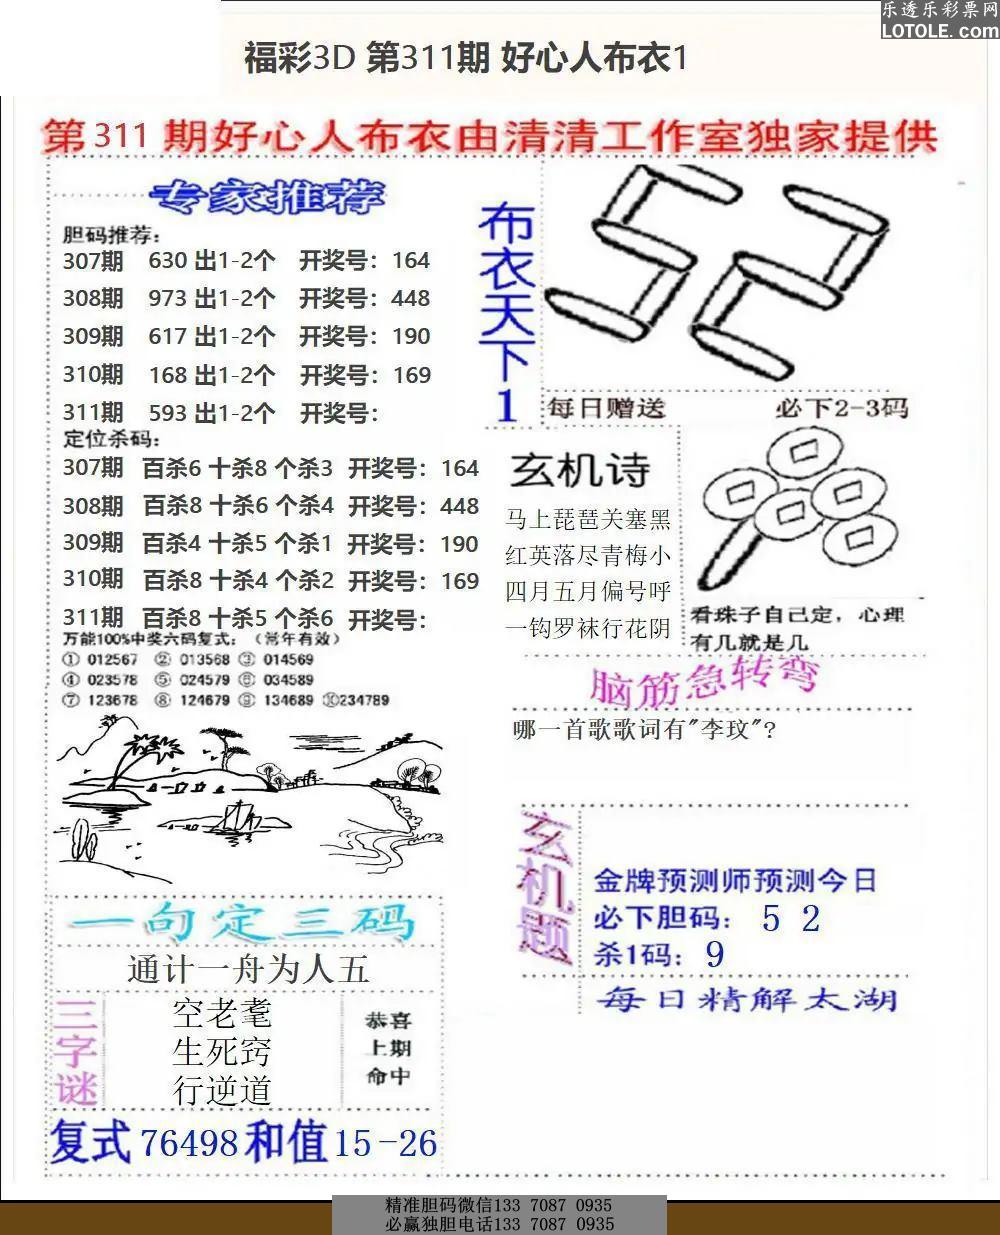 乐透乐彩票网
LOTOLE.com
福彩3D 第311期 好心人布衣1
第 311 期好心人布衣由清清工作室独家提供
专家推荐
胆码推荐：
307期 630 出1-2个 开奖号：164
308期 973 出1-2个 开奖号：448
309期 617 出1-2个 开奖号：190
310期 168 出1-2个 开奖号：169
311期 593 出1-2个 开奖号：
定位杀码：
307期 百杀6 十杀8 个杀3 开奖号：164
308期 百杀8 十杀6 个杀4 开奖号：448
309期 百杀4 十杀5 个杀1 开奖号：190
310期 百杀8 十杀4 个杀2 开奖号：169
311期 百杀8 十杀5 个杀6 开奖号：
万能100%中奖六码复式：（常年有效）
① 012567 ② 013568 ③ 014569
④ 023578 ⑤ 024579 ⑥ 034589
⑦ 123678 ⑧ 124679 ⑨ 134689 ⑩234789
一句定三码
通计一舟为人五
三字谜
空老耄
生死窍
行逆道
恭喜
上期
命中
复式 76498 和值 15-26
布衣天下1
52
每日赠送 必下2-3码
玄机诗
马上琵琶关塞黑
红英落尽青梅小
四月五月偏号呼
一钩罗袜行花阴
看珠子自己定，心理
有几就是几
脑筋急转弯
哪一首歌歌词有"李玟"?
玄机题
金牌预测师预测今日
必下胆码： 5 2
杀1码： 9
每日精解太湖
精准胆码微信133 7087 0935
必赢独胆电话133 7087 0935